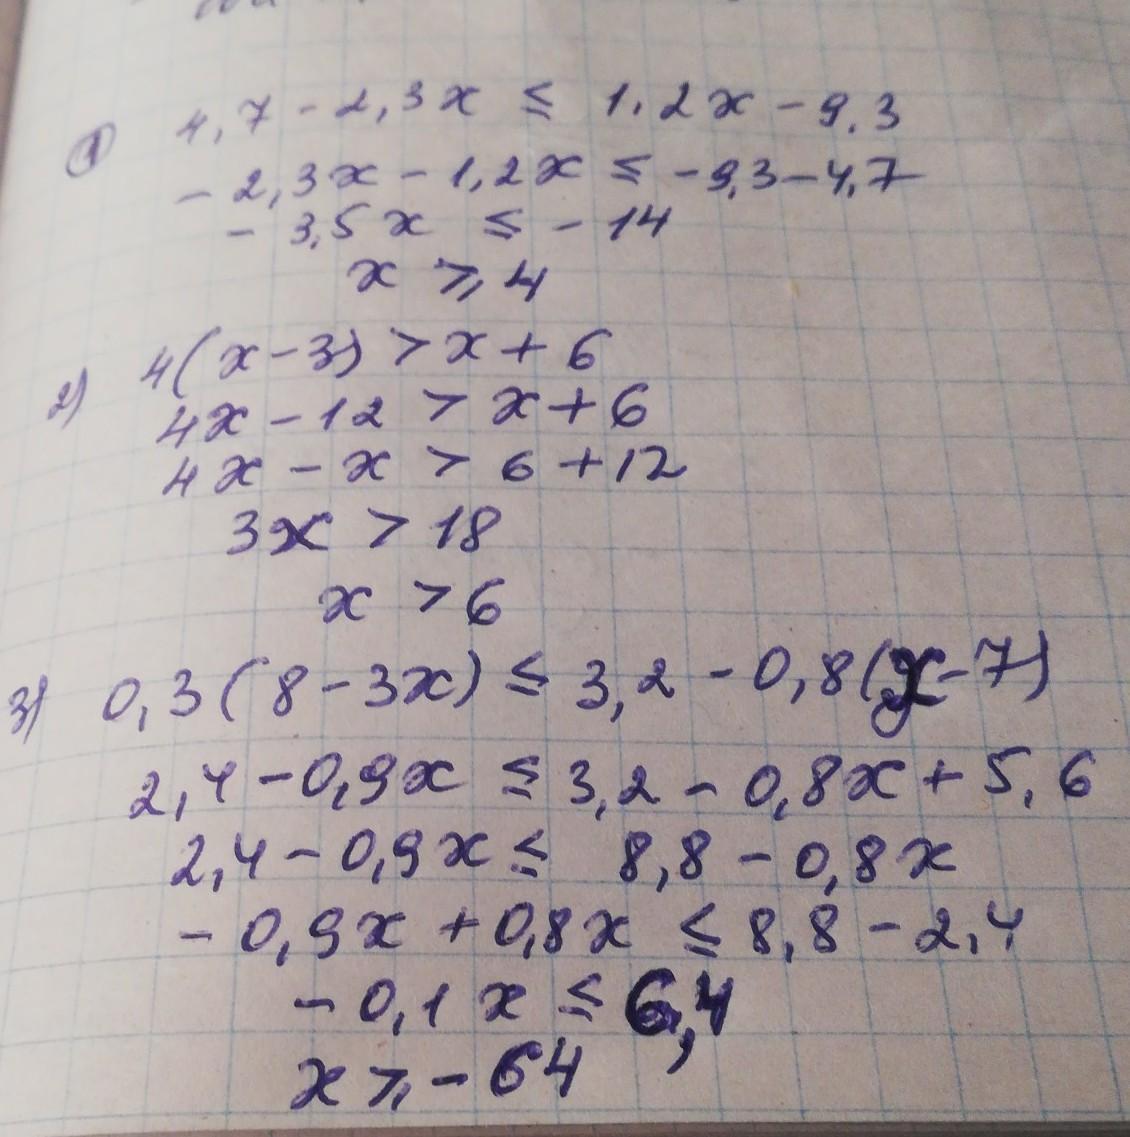 1) 4,7 - 2,3x ≤ 1,2x - 9,3
- 2,3x - 1,2x ≤ -9,3 - 4,7
- 3,5x ≤ - 14
x ⩾ 4
2) 4(x - 3) > x + 6
4x - 12 > x + 6
4x - x > 6 + 12
3x > 18
x > 6
3) 0,3(8 - 3x) ≤ 3,2 - 0,8(x - 7)
2,4 - 0,9x ≤ 3,2 - 0,8x + 5,6
2,4 - 0,9x ≤ 8,8 - 0,8x
- 0,9x + 0,8x ≤ 8,8 - 2,4
- 0,1x ≤ 6,4
x ⩾ - 64